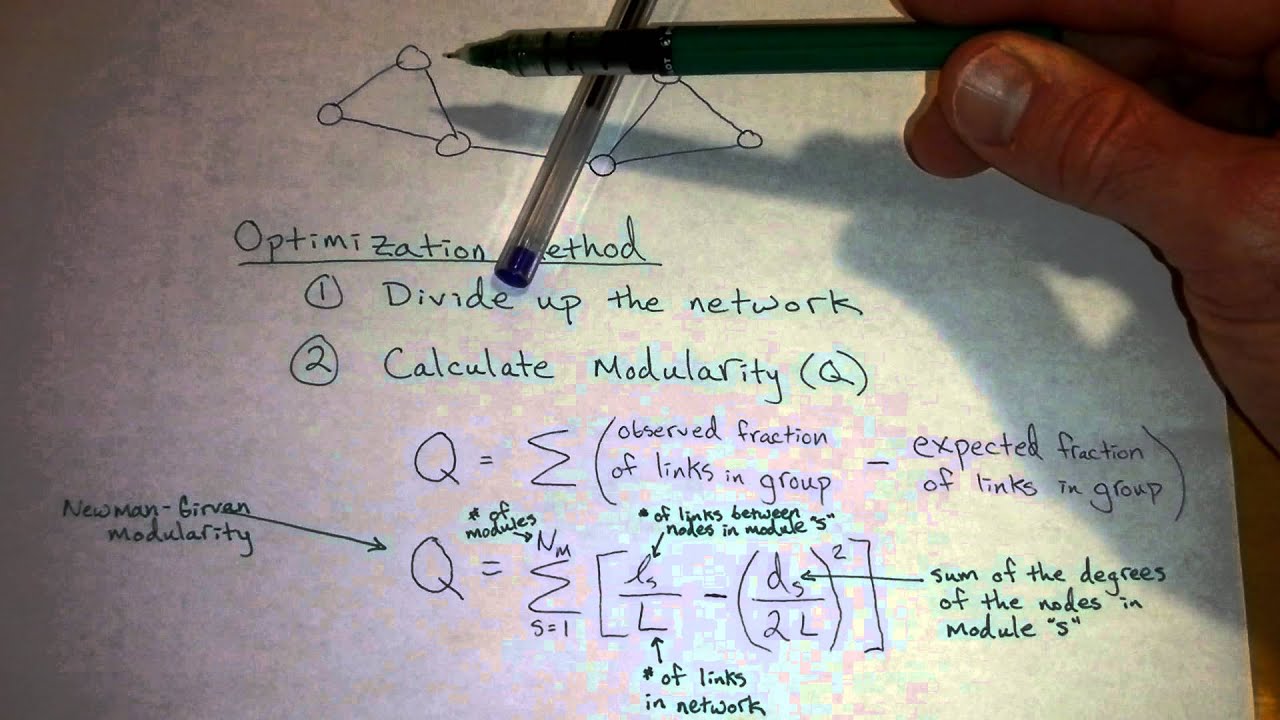 Optimization ethod
① Divide up the network
② Calculate Modularity (Q)
Q = Σ (observed fraction of links in group − expected fraction of links in group)
Newman-Girvan modularity
# of modules
# of links between nodes in module "s"
Q = Σ_{s=1}^{N_M} [ l_s / L − ( d_s / 2L )² ]
sum of the degrees of the nodes in module "s"
# of links in network